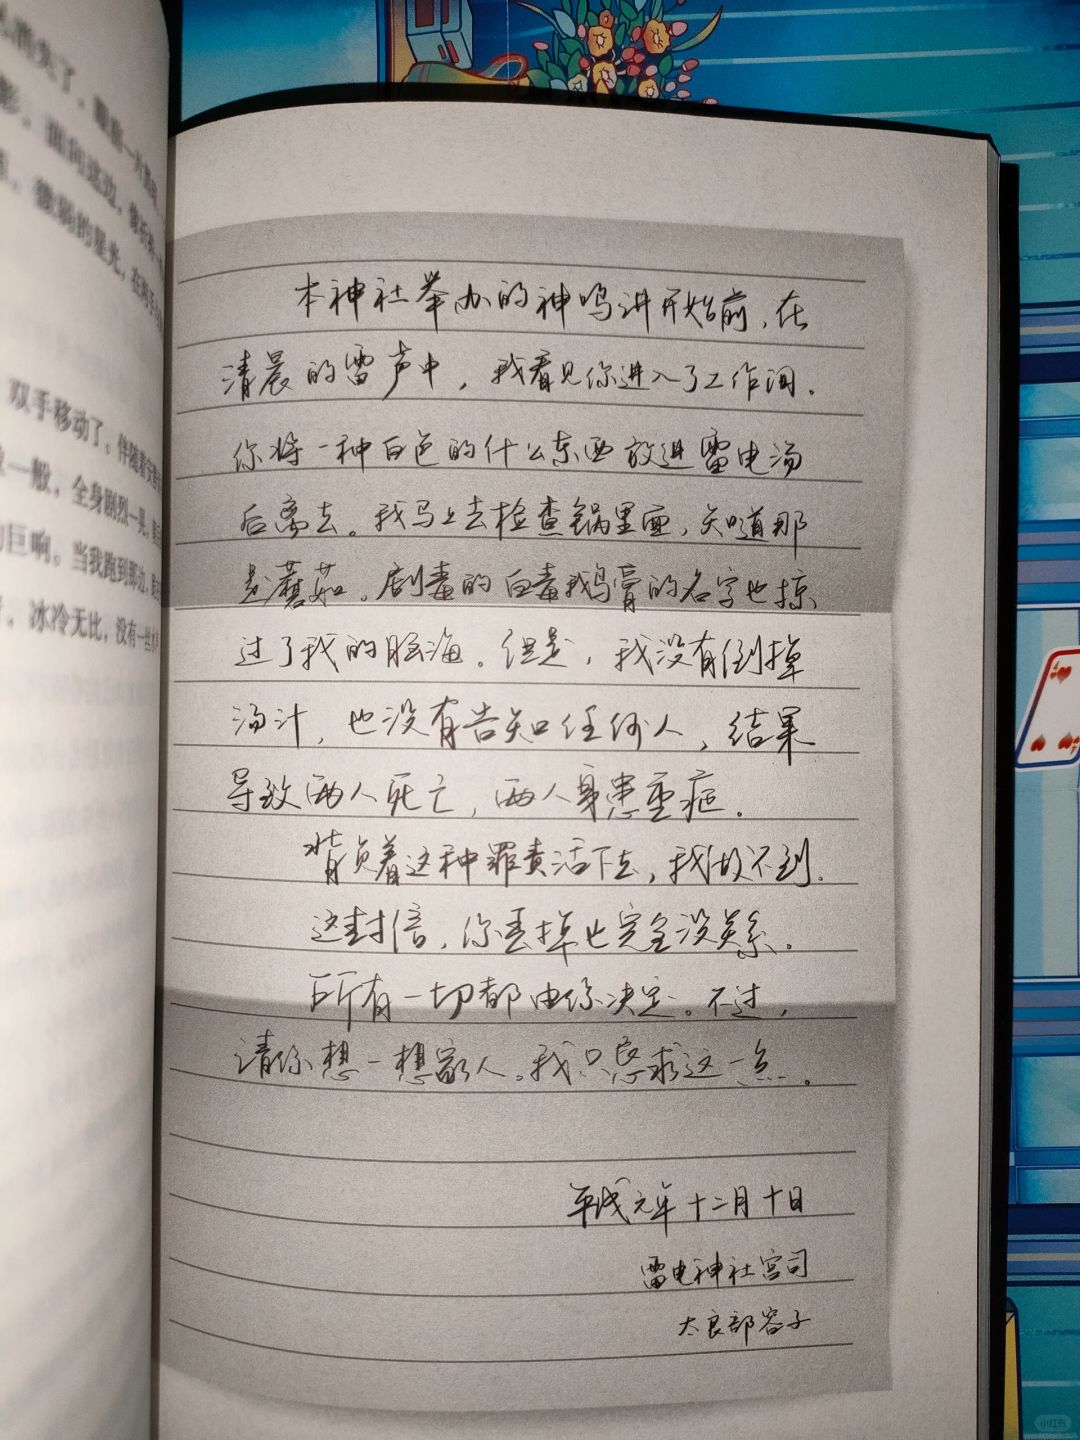 消失了，眼前一片
影，面向这边，像
微弱的星光，在
双手移动了。伴随着
一般，全身剧烈一晃，
巨响。当我跑到那边，
，冰冷无比，没有一丝
本神社举办的神鸣讲开始前，在
清晨的雷声中，我看见你进入了工作间。
你将一种白色的什么东西放进雷电汤
后离去。我马上去检查锅里面，知道那
是蘑菇。剧毒的白毒鹅膏的名字也掠
过了我的脑海。但是，我没有倒掉
汤汁，也没有告知任何人，结果
导致两人死亡，两人身患重症。
背负着这种罪责活下去，我做不到。
这封信，你丢掉也完全没关系。
所有一切都由你决定。不过，
请你想一想家人。我只恳求这一点。
平成元年十二月十日
雷电神社宫司
太良部容子
小红书